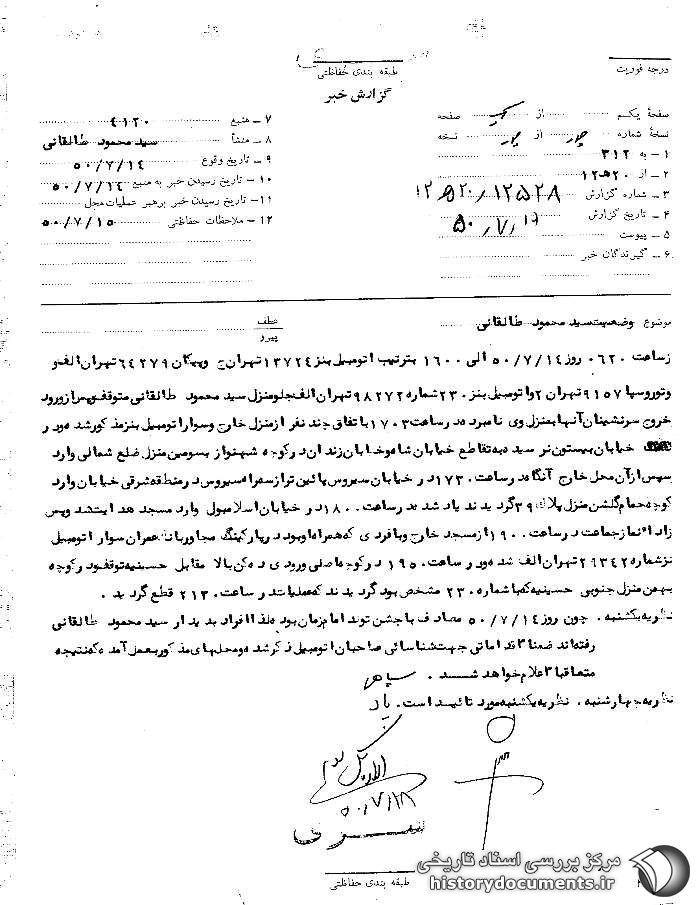 درجه فوریت
طبقه بندی حفاظتی
گزارش خبر
صفحهٔ یکم از یک صفحه
نسخهٔ شماره چهار از چهار نسخه
۱ – به ۳۱۲
۲ – از ۲۰ ه‍ ۱۲
۳ – شماره گزارش ۱۲۵۲۸ / ۲۰ ه‍ ۱۲
۴ – تاریخ گزارش ۵۰/۷/۱۷
۵ – پیوست
۶ – گیرندگان خبر
۷ – منبع ۴۱۲۰
۸ – منشأ سید محمود طالقانی
۹ – تاریخ وقوع ۵۰/۷/۱۴
۱۰ – تاریخ رسیدن خبر به منبع ۵۰/۷/۱۴
۱۱ – تاریخ رسیدن خبر برهبر عملیات محل
۱۲ – ملاحظات حفاظتی ۵۰/۷/۱۵
موضوع وضعیت سید محمود طالقانی
عطف
پیرو
از ساعت ۰۶۲۰ روز ۵۰/۷/۱۴ الی ۱۶۰۰ بترتیب اتومبیل بنز ۱۳۷۲۴ تهران ج و پیکان ۶۴۲۷۹ تهران الف و
۹۱۵۷ تهران ۲ و اتومبیل بنز ۲۳۰ شماره ۹۸۲۷۲ تهران الف جلو منزل سید محمود طالقانی متوقف پس از ورود
خروج سرنشینان آنها بمنزل وی نامبرده در ساعت ۱۷۰۳ باتفاق چند نفر از منزل خارج و سوار اتومبیل بنز مذکور شده و در
خیابان بیستون نرسیده به تقاطع خیابان شاه و خیابان زندان در کوچه شهنواز بسومین منزل ضلع شمالی وارد
سپس از آن محل خارج آنگاه در ساعت ۱۷۳۰ در خیابان سیروس پائین تر از سه راه سیروس در منطقه شرقی خیابان وارد
کوچه حمام گلشن منزل پلاک ۳۹ گردیدند یاد شده در ساعت ۱۸۰۰ در خیابان اسلامبول وارد مسجد هدایت شد و پس
از ادا نماز جماعت در ساعت ۱۹۰۰ از مسجد خارج و با فردی که همراه او بود در پارکینگ مجاور بانک عمران سوار اتومبیل
بنز شماره ۲۹۳۴۲ تهران الف شده و در ساعت ۱۹۵۰ در کوچه اصلی ورودی ده کن بالا مقابل حسینیه توقف و در کوچه
بهمن منزل جنوبی حسینیه که با شماره ۲۳۰ مشخص بود گردیدند که عملیات در ساعت ۲۱۳۰ قطع گردید .
نظریه یکشنبه . چون روز ۵۰/۷/۱۴ مصادف با جشن تولد امام زمان بوده لذا افراد بدیدار سید محمود طالقانی
رفته اند ضمنا اقداماتی جهت شناسائی صاحبان اتومبیل ذکر شده و محلهای مذکور بعمل آمده که نتیجه
متعاقبا اعلام خواهد شد . سپاهی
نظریه چهارشنبه . نظریه یکشنبه مورد تائید است.
۵۰/۷/۱۸
ســری
طبقه بندی حفاظتی
مرکز بررسی اسناد تاریخی
historydocuments.ir